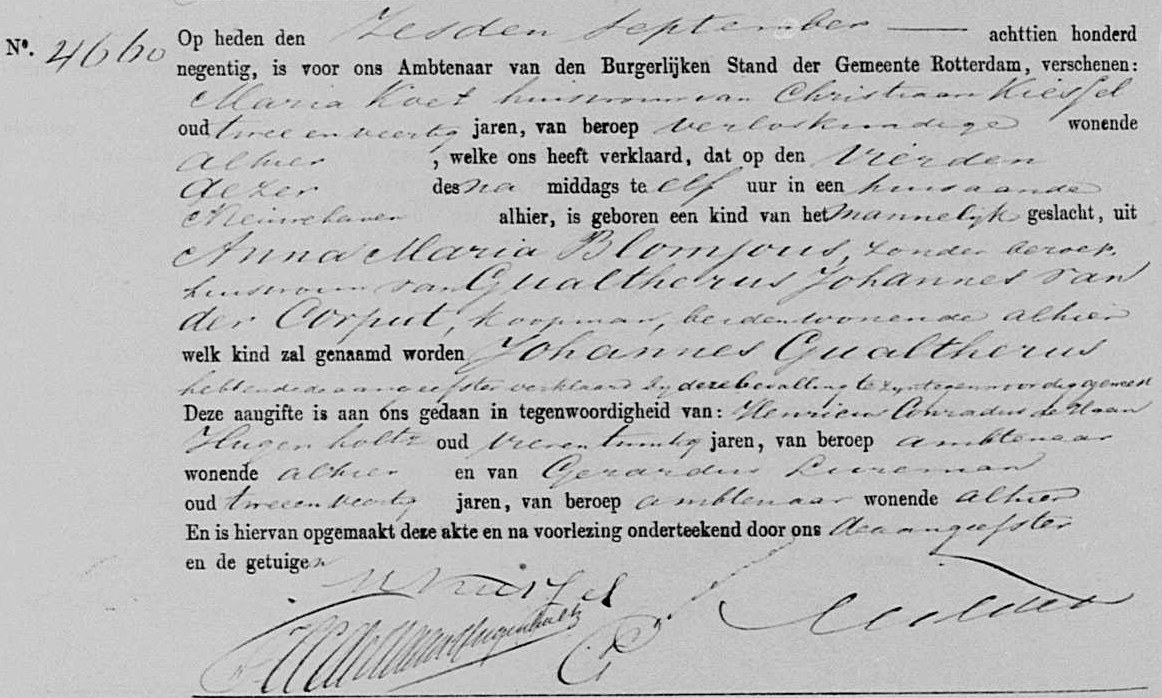 Nº. 4660
Op heden den Zesden September — achttien honderd
negentig, is voor ons Ambtenaar van den Burgerlijken Stand der Gemeente Rotterdam, verschenen:
Maria Koet huisvrouw van Christiaan Kiessel
oud twee en veertig jaren, van beroep verloskundige wonende
alhier, welke ons heeft verklaard, dat op den Vierden
dezer des na middags te elf uur in een huis aan de
Nieuwehaven alhier, is geboren een kind van het mannelijk geslacht, uit
Anna Maria Blomjous, zonder beroep,
huisvrouw van Gualtherus Johannes van
der Corput, koopman, beiden wonende alhier
welk kind zal genaamd worden Johannes Gualtherus
hebbende de aangeefster verklaard bij deze bevalling te zijn tegenwoordig geweest
Deze aangifte is aan ons gedaan in tegenwoordigheid van: Henricus Conradus de Haan
Hugenholtz oud vierentwintig jaren, van beroep ambtenaar
wonende alhier en van Gerardus
oud tweeenveertig jaren, van beroep ambtenaar wonende alhier
En is hiervan opgemaakt deze akte en na voorlezing onderteekend door ons de aangeefster
en de getuigen
de Haan Hugenholtz